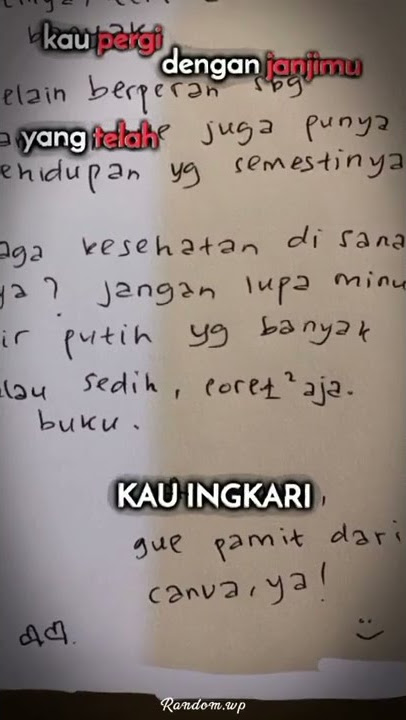 kau pergi
dengan janjimu
elain berperan sbg
yang telah
juga punya
ehidupan yg semestinya
aga kesehatan di sana
ya? jangan lupa minu
ir putih yg banyak
lau sedih, coret² aja.
buku.
KAU INGKARI
gue pamit dari
canva, ya!
Random.wp